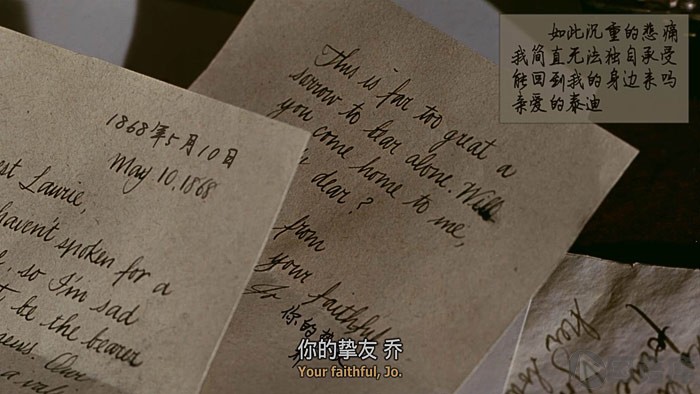 如此沉重的悲痛
我简直无法独自承受
能回到我的身边来吗
亲爱的泰迪
This is far too great a
sorrow to bear alone. Will
you come home to me,
dear?
from
your faithful
Jo
你的挚友
1868年5月10日
May 10, 1868
est Laurie,
haven't spoken for a
so I'm sad
be the bearer
Our
你的挚友 乔
Your faithful, Jo.